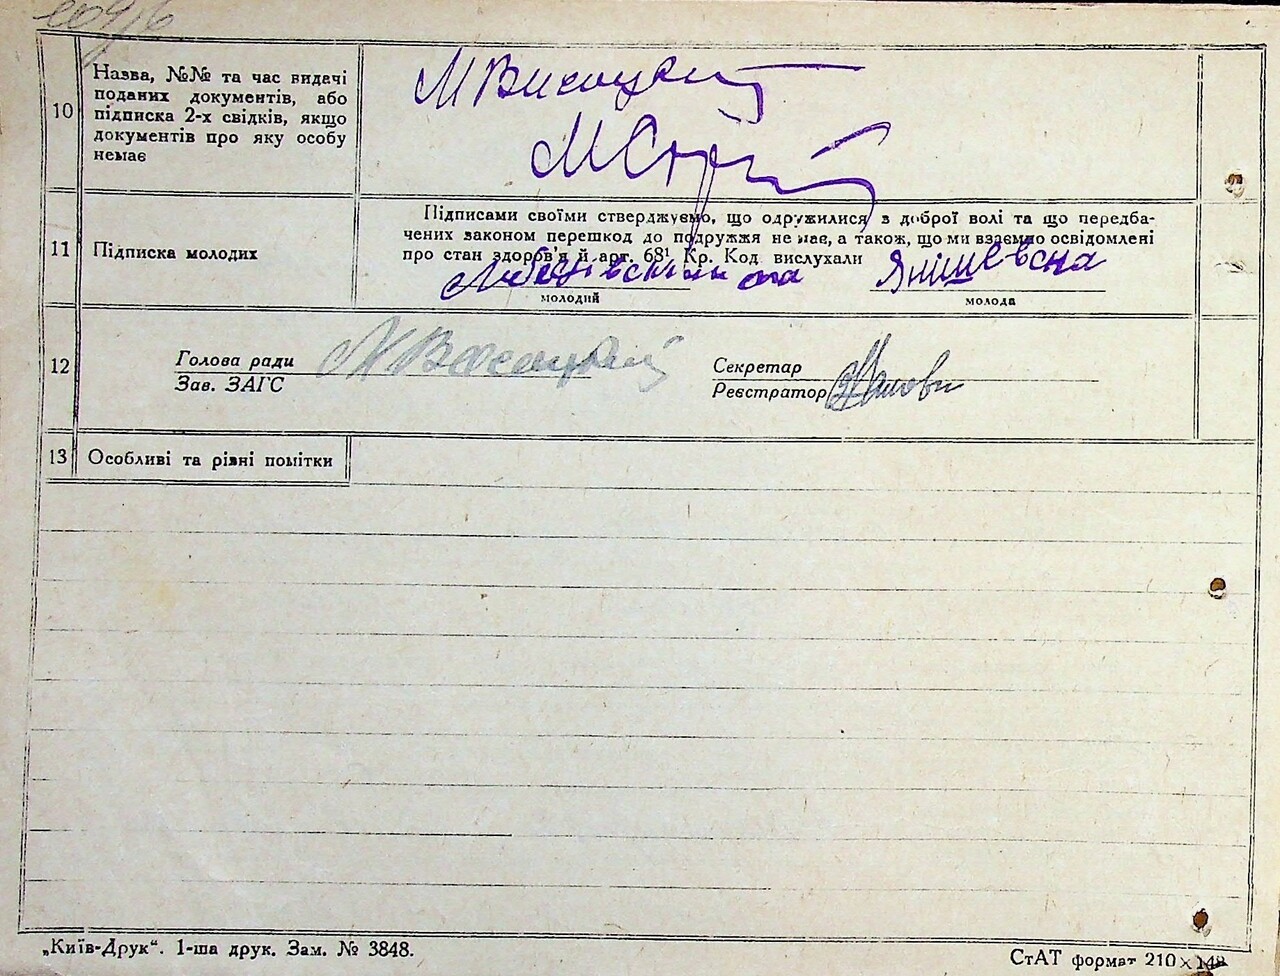 10
Назва, №№ та час видачі
поданих документів, або
підписка 2-х свідків, якщо
документів про яку особу
немає
МВисоцкий
11
Підписка молодих
Підписами своїми стверджуємо, що одружилися з доброї волі та що передба-
чених законом перешкод до подружжя не має, а також, що ми взаємно освідомлені
про стан здоров'я й арт. 68¹ Кр. Код вислухали
Янишевска
молодий
молода
12
Голова ради
Зав. ЗАГС
Секретар
Реєстратор
13
Особливі та різні помітки
„Київ-Друк“. 1-ша друк. Зам. № 3848.
СтАТ формат 210×148